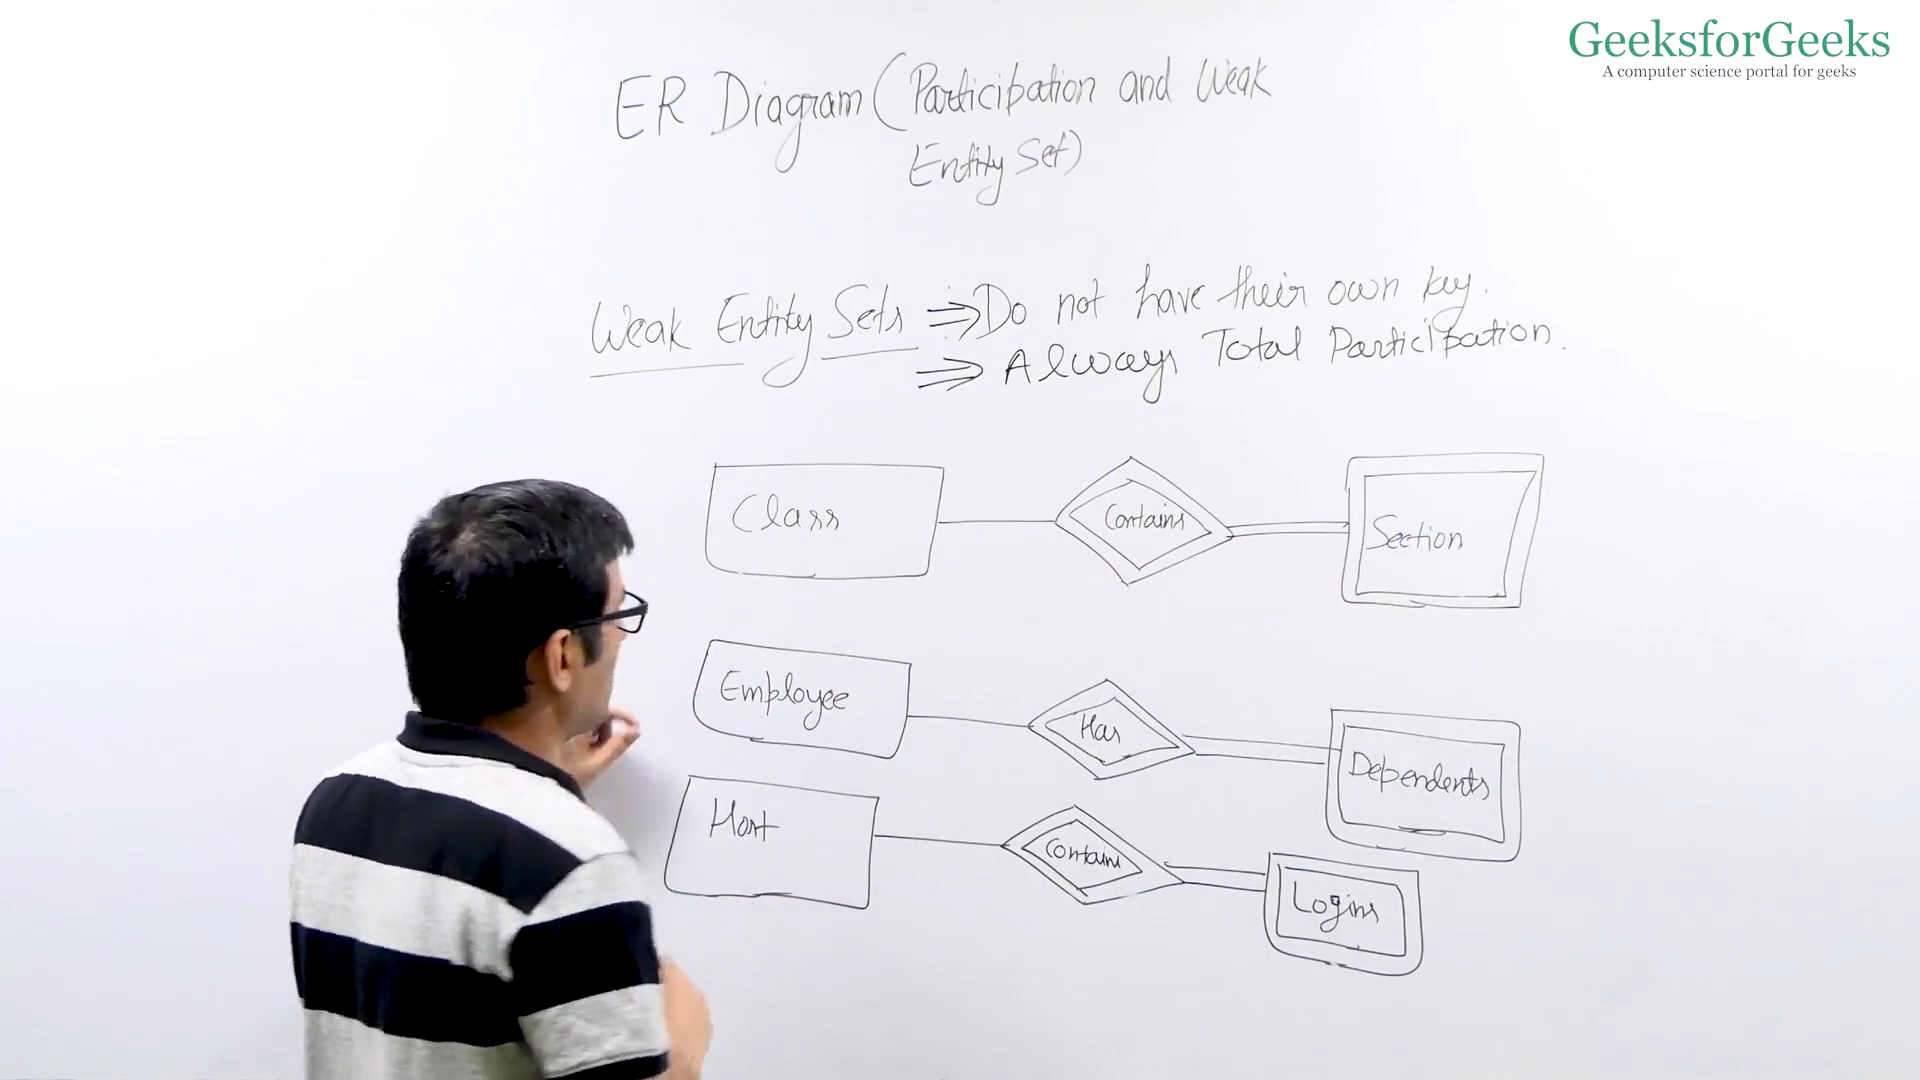 GeeksforGeeks
A computer science portal for geeks
ER Diagram (Participation and Weak
Entity Set)
Weak Entity Sets ⇒ Do not have their own key.
⇒ Always Total Participation.
Class
Contains
Section
Employee
Has
Dependents
Host
Contains
Logins